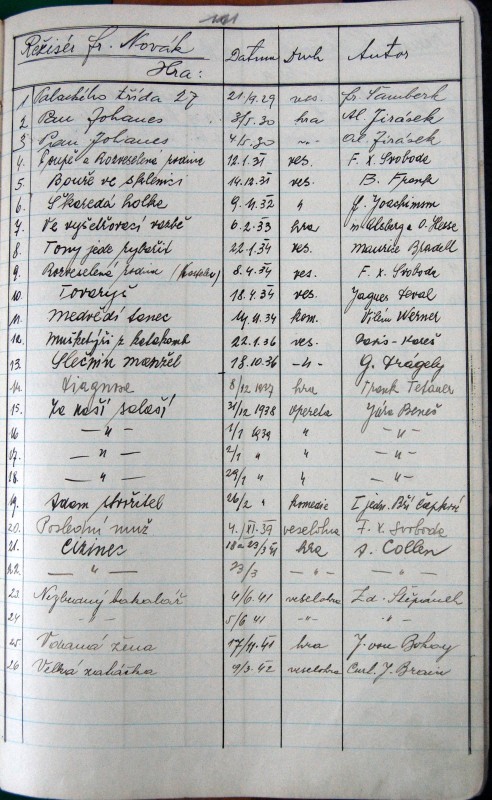 101
Režisér Fr. Novák
Hra: Datum Druh Autor
1 Palackého třída 27 21/4.29 ves. Fr. Šamberk
2 Pan Johanes 3/5.30 hra Al. Jirásek
3 Pan Johanes 4/5.30 -"- Al. Jirásek
4. Poupě a Rozveselená rodina 12.1.31 ves. F. X. Svoboda
5. Bouře ve sklenici 14.12.31 ves. B. Frank
6. Škaredá holka 9.4.32 " J. Joachimson
7. Ve vyšetřovací vazbě 6.2.33 hra m Alsberg a O. Hesse
8. Tony jede rybařit 22.1.34 ves. Maurice Bradell
9. Rozveselená rodina 8.4.34 ves. F. X. Svoboda
10. Tovaryš 18.4.34 ves. Jaques Deval
11. Medvědí tanec 14.11.34 kom. Vilém Werner
12. Mušketýři z katakomb 22.1.36 ves.
13. Slečnin manžel 18.10.36 -"- G. Drágely
14. Diagnosa 8/12 1937 hra Frank Tetauer
15. Za naší salaší 31/12 1938 opereta Jára Beneš
16 — " — 1/1 1939 " -"-
17. — " — 2/1 " " -"-
18. — " — 29/1 " " -"-
19. Adam stvořitel 26/2 " komedie
20. Poslední muž 4./VI.39 veselohra F. X. Svoboda
21. Cizinec hra A. Collen
22. — " — 23/3 — — " —
23. Nezbedný bakalář 4/6.41 veselohra Zd. Štěpánek
24 — " — 5/6 41 -"- -"-
25. Vdaná žena 17/11.41 hra J. von Bokay
26 Velká zatáčka 9/3.42 veselohra Curt. J. Braun